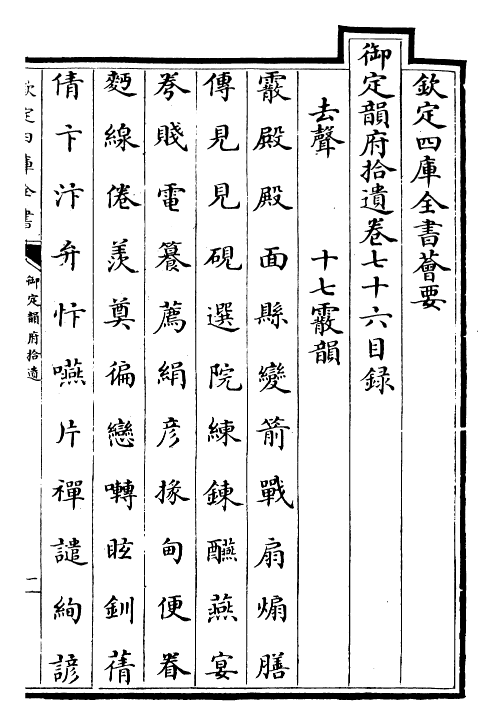 欽定四庫全書薈要
御定韻府拾遺卷七十六目録
去聲　十七霰韻
霰殿殿面縣變箭戰扇煽膳
傳見見硯選院練鍊醼燕宴
弮賤電饔薦絹彦掾甸便眷
麪線倦羨奠徧戀囀眩釧蒨
倩卞汴弁忭嚥片禪譴絢諺
欽定四庫全書
御定韻府拾遺
一